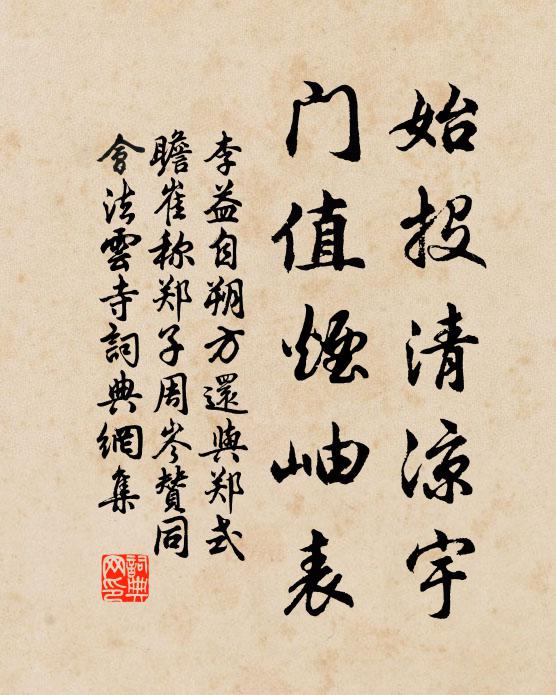 始投清凉宇
门值煙岫表
李益自朔方還與郑式
瞻崔称郑子周岑賛同
會法雲寺詞典網集
詞典网印